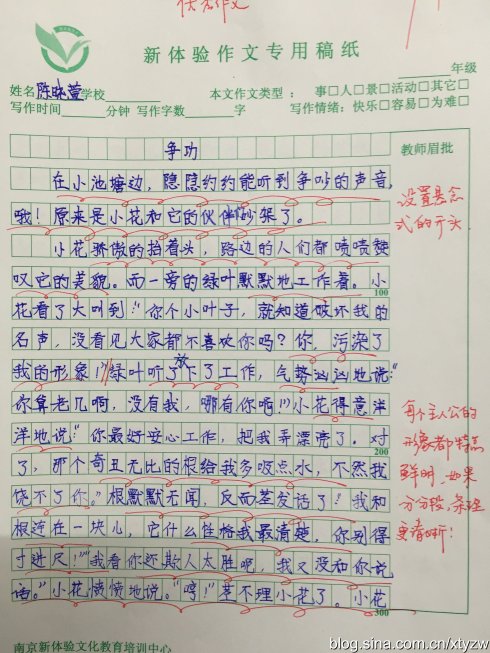 优秀作文
新体验作文专用稿纸
年级
姓名 陈晓萱 学校 本文作文类型： 事□人□景□活动□其它□
写作时间 分钟 写作字数 字 写作情绪：快乐□容易□为难□
争功
教师眉批
在小池塘边，隐隐约约能听到争吵的声音，
哦！原来是小花和它的伙伴吵架了。
设置悬念
式的开头
小花骄傲的抬着头，路边的人们都啧啧赞
叹它的美貌。而一旁的绿叶默默地工作着。小
100
花看了大叫到：“你个小叶子，就知道破坏我的
名声，没看见大家都不喜欢你吗？你，污染了
我的形象！”绿叶听了放下了工作，气势汹汹地说：“
你算老几啊，没有我，哪有你啊！”小花得意洋
洋地说：“你最好安心工作，把我弄漂亮了。对
200
了，那个奇丑无比的根给我多吸点水，不然我
饶不了你。”根默默无闻，反而茎发话了：“我和
根连在一块儿，它什么性格我最清楚，你别得
寸进尺！”“我看你还欺人太胜吧，我又没和你说
话。”小花愤愤地说。“哼！”茎不理小花了。小花
300
每个主人公的
形象都特点
鲜明，如果
分分段，条理
更清晰！
南京新体验文化教育培训中心
blog.sina.com.cn/xtyzw